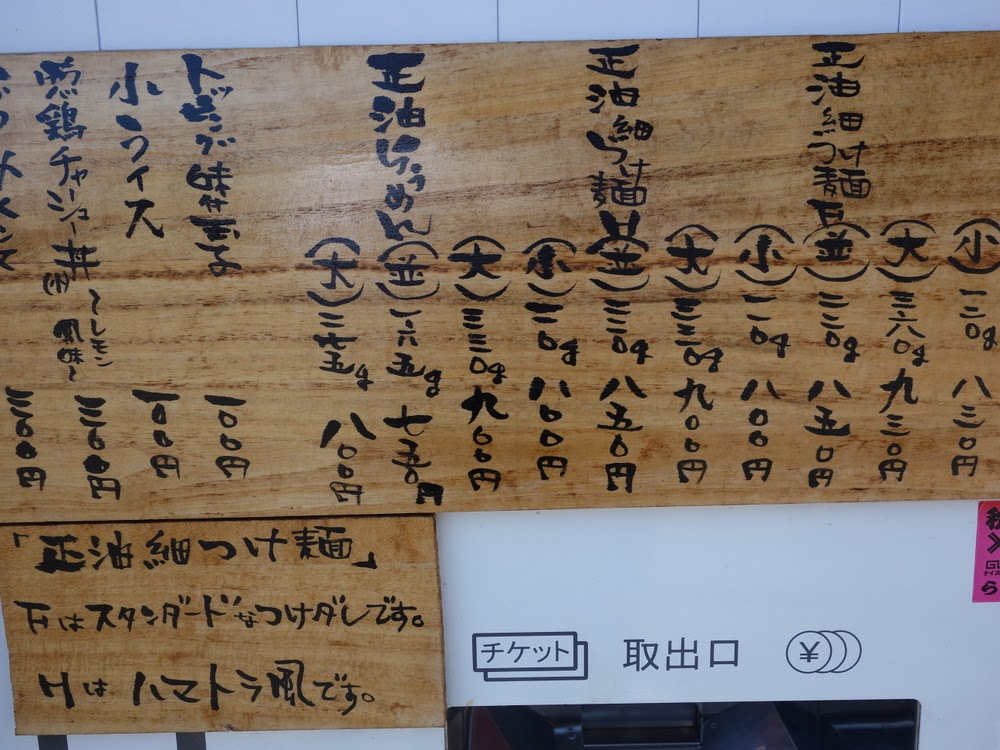 (小)一二〇g 八三〇円
(大) 九三〇円
正油細つけ麺F(並)二二〇g 八五〇円
(小)一一〇g 八〇〇円
(大)三三〇g 九〇〇円
正油細つけ麺H(並)二二〇g 八五〇円
(小)一一〇g 八〇〇円
(大)三三〇g 九〇〇円
正油らぅめん(並)一六五g 七五〇円
(大)二七五g 八〇〇円
トッピング味付玉子 一〇〇円
小ライス 一〇〇円
鶏チャーシュー丼 ~レモン風味~ 三〇〇円
三〇〇円
「正油細つけ麺」
Fはスタンダードなつけダレです。
Hはハマトラ風です。
チケット 取出口 ¥